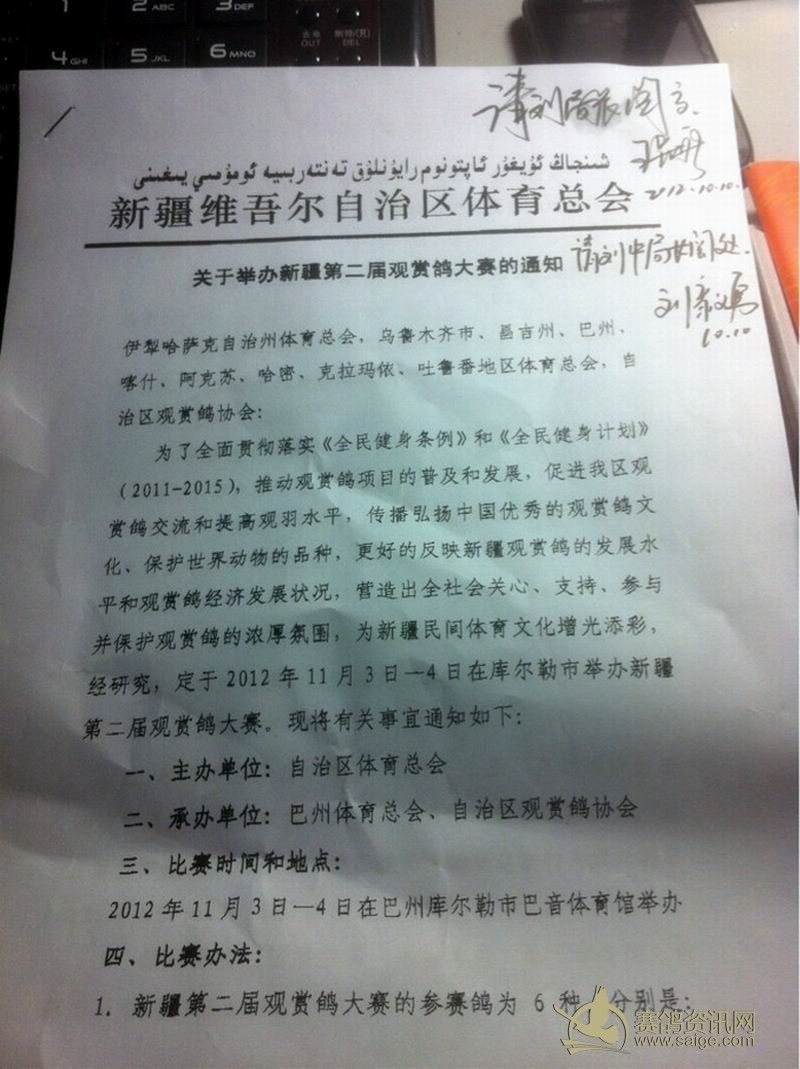 1
2ABC
3DEF
4GHI
5JKL
6MNO
去电
OUT
删除/(R)
DEL
2012.10.10.
شىنجاڭ ئۇيغۇر ئاپتونوم رايۇنلۇق تەنتەربىيە ئومۇمىي يىغىنى
新疆维吾尔自治区体育总会
关于举办新疆第二届观赏鸽大赛的通知
10.10
伊犁哈萨克自治州体育总会，乌鲁木齐市、昌吉州、巴州、
喀什、阿克苏、哈密、克拉玛依、吐鲁番地区体育总会，自
治区观赏鸽协会：
为了全面贯彻落实《全民健身条例》和《全民健身计划》
（2011-2015），推动观赏鸽项目的普及和发展，促进我区观
赏鸽交流和提高观羽水平，传播弘扬中国优秀的观赏鸽文
化、保护世界动物的品种，更好的反映新疆观赏鸽的发展水
平和观赏鸽经济发展状况，营造出全社会关心、支持、参与
并保护观赏鸽的浓厚氛围，为新疆民间体育文化增光添彩，
经研究，定于2012年11月3日—4日在库尔勒市举办新疆
第二届观赏鸽大赛。现将有关事宜通知如下：
一、主办单位：自治区体育总会
二、承办单位：巴州体育总会、自治区观赏鸽协会
三、比赛时间和地点：
2012年11月3日—4日在巴州库尔勒市巴音体育馆举办
四、比赛办法：
1. 新疆第二届观赏鸽大赛的参赛鸽为 6 种，分别是：
赛鸽资讯网
www.saige.com